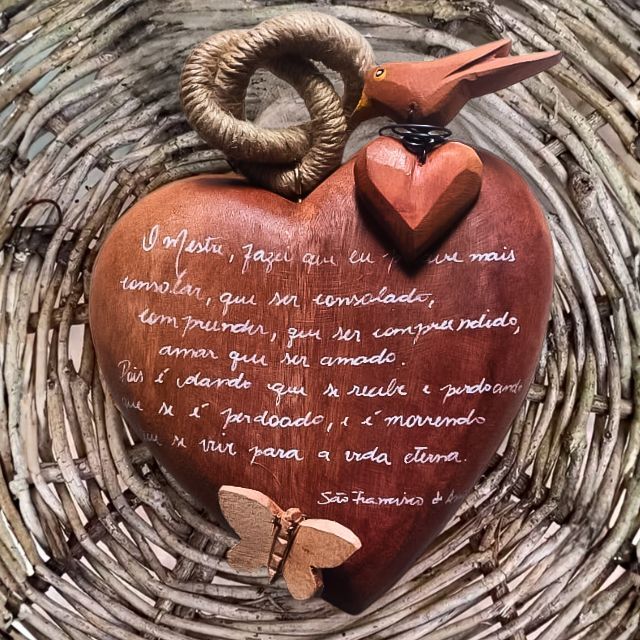 Ó Mestre, fazei que eu procure mais
consolar, que ser consolado,
compreender, que ser compreendido,
amar que ser amado.
Pois é dando que se recebe e perdoando
que se é perdoado, e é morrendo
que se vive para a vida eterna.
São Francisco de